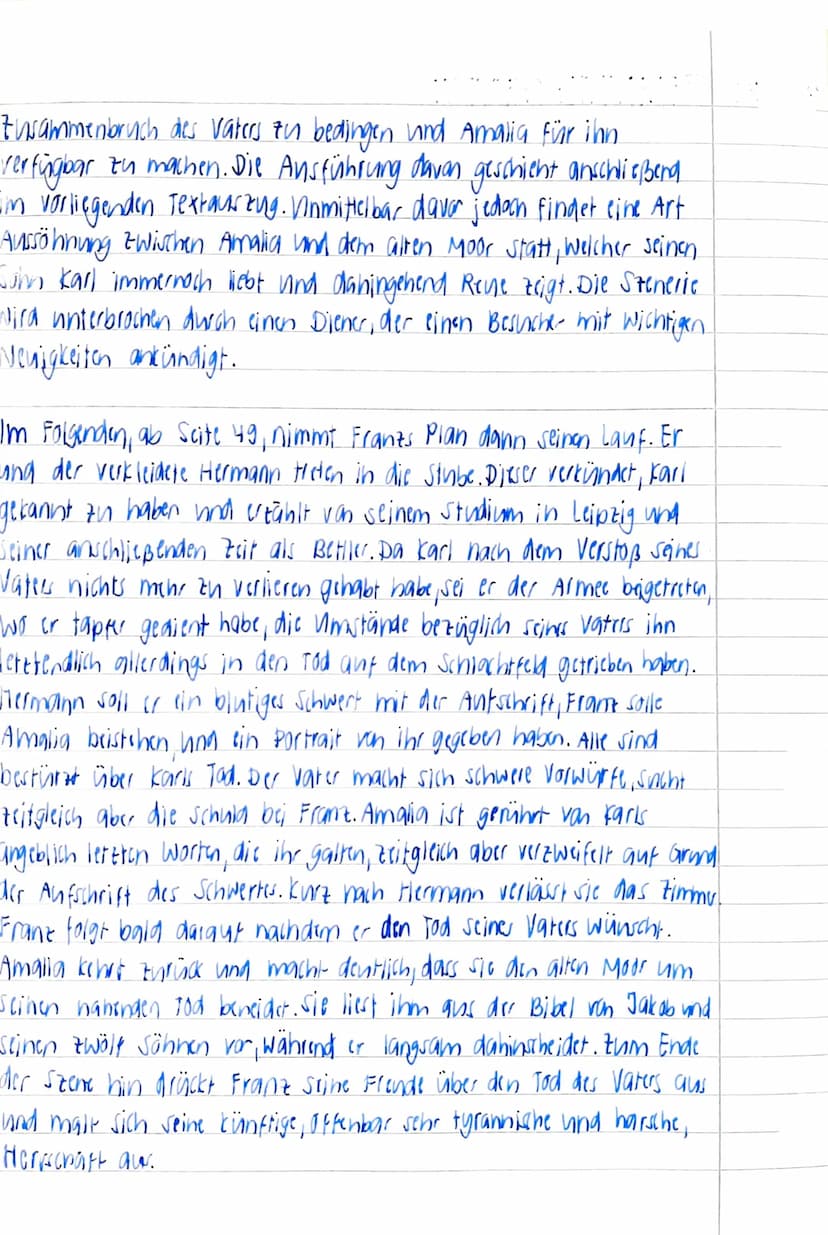 Zusammenbruch des Vaters zu bedingen und Amalia für ihn
verfügbar zu machen. Die Ausführung davon geschieht anschließend
im vorliegenden Textauszug. Unmittelbar davor jedoch findet eine Art
Aussöhnung zwischen Amalia und dem alten Moor statt, welcher seinen
Sohn Karl immernoch liebt und dahingehend Reue zeigt. Die Szenerie
wird unterbrochen durch einen Diener, der einen Besucher mit wichtigen
Neuigkeiten ankündigt.
Im Folgenden, ab Seite 49, nimmt Franzs Plan dann seinen Lauf. Er
und der verkleidete Hermann treten in die Stube. Dieser verkündet, Karl
gekannt zu haben und erzählt von seinem Studium in Leipzig und
seiner anschließenden Zeit als Bettler. Da Karl nach dem Verstoß seines
Vaters nichts mehr zu verlieren gehabt habe, sei er der Armee beigetreten,
wo er tapfer gedient habe, die Umstände bezüglich seines Vaters ihn
letztendlich allerdings in den Tod auf dem Schlachtfeld getrieben haben.
Hermann soll er ein blutiges Schwert mit der Aufschrift, Franz solle
Amalia beistehen, und ein Portrait von ihr gegeben haben. Alle sind
bestürzt über Karls Tod. Der Vater macht sich schwere Vorwürfe, sucht
zeitgleich aber die Schuld bei Franz. Amalia ist gerührt von Karls
angeblich letzten Worten, die ihr galten, zeitgleich aber verzweifelt auf Grund
der Aufschrift des Schwertes. Kurz nach Hermann verlässt sie das Zimmer.
Franz folgt bald darauf nachdem er den Tod seines Vaters wünscht.
Amalia kehrt zurück und macht deutlich, dass sie den alten Moor um
seinen nahenden Tod beneidet. Sie liest ihm aus der Bibel von Jakob und
seinen zwölf Söhnen vor, während er langsam dahinscheidet. Zum Ende
der Szene hin drückt Franz seine Freude über den Tod des Vaters aus
und malt sich seine künftige, offenbar sehr tyrannische und harsche,
Herrschaft aus.